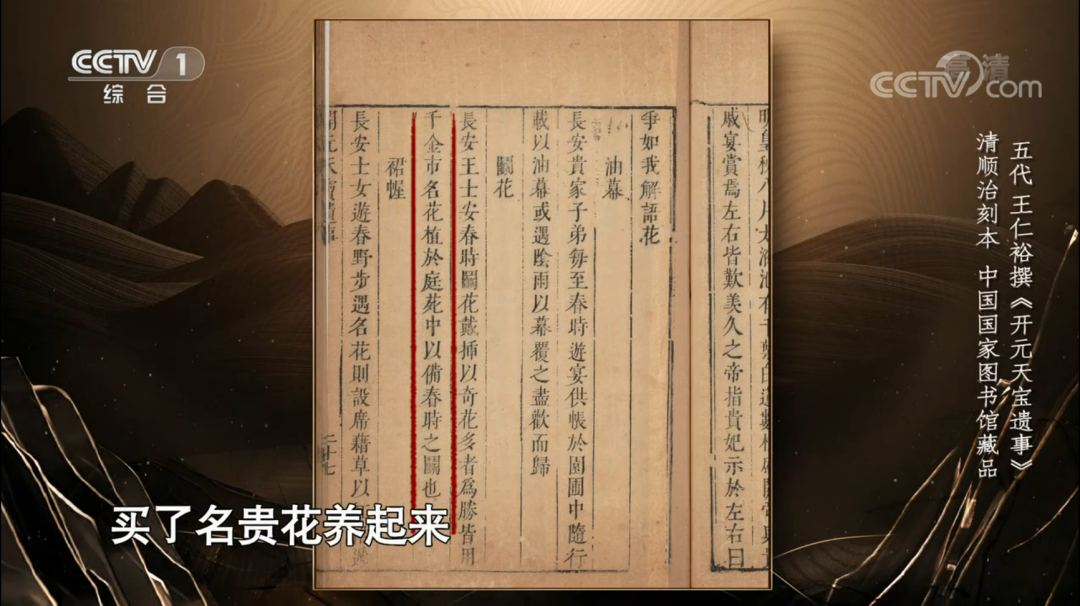 CCTV 1
综合
CCTV.com
高清
五代 王仁裕撰《开元天宝遗事》
清顺治刻本 中国国家图书馆藏品
戚宴賞焉左右皆歎美久之帝指貴妃示於左右曰
爭如我解語花
油幕
長安貴家子弟每至春時遊宴供帳於園圃中隨行
載以油幕或遇陰雨以幕覆之盡歡而歸
鬭花
長安王士安春時鬭花戴揷以奇花多者爲勝皆用
千金市名花植於庭苑中以備春時之鬭也
裙幄
長安士女遊春野步遇名花則設席藉草以
二十七
买了名贵花养起来